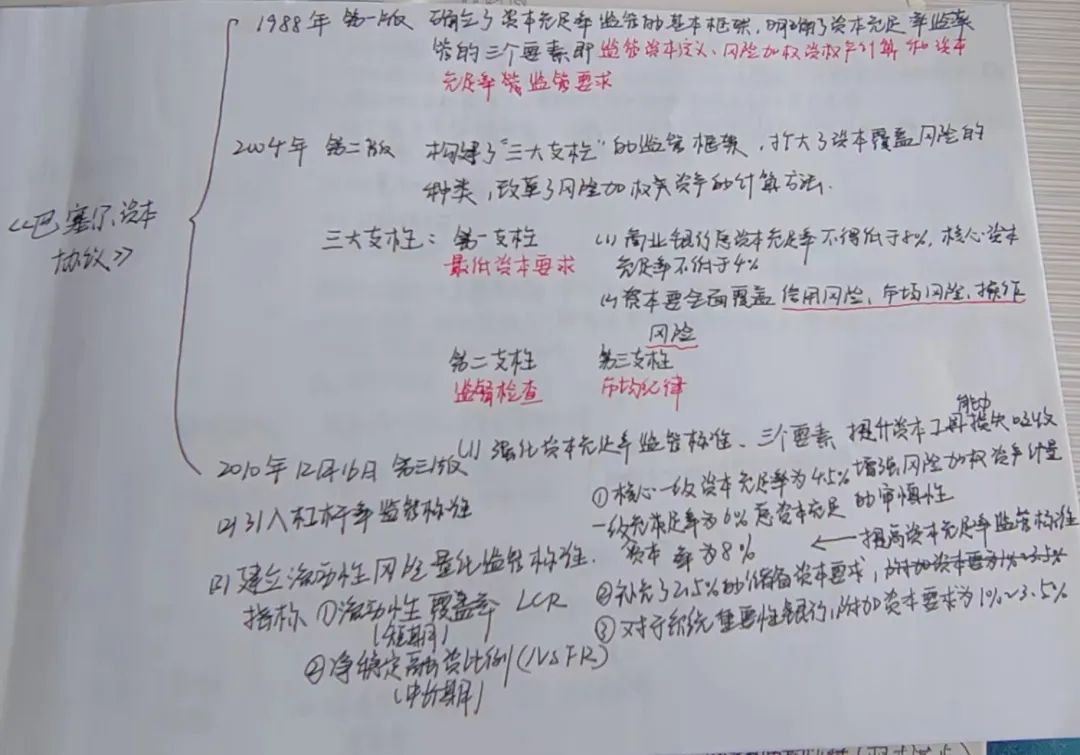 《巴塞尔资本
协议》
1988年 第一版 确立了资本充足率监管的基本框架,明确了资本充足率监
管的三个要素即监管资本定义、风险加权资产计算和资本
充足率监管要求
2004年 第二版 构建了"三大支柱"的监管框架,扩大了资本覆盖风险的
种类,改革了风险加权资产的计算方法.
三大支柱: 第一支柱 (1) 商业银行总资本充足率不得低于8%,核心资本
最低资本要求 充足率不低于4%
(2) 资本要全面覆盖信用风险、市场风险、操作
风险
第二支柱 第三支柱
监督检查 市场纪律
2010年12月16日 第三版 (1) 强化资本充足率监管标准、三个要素 提升资本工具损失吸收
能力
(2) 引入杠杆率监管标准
① 核心一级资本充足率为4.5% 增强风险加权资产计量
一级充足率为6% 总资本充足 的审慎性
资本 率为8% ← 提高资本充足率监管标准
(3) 建立流动性风险量化监管标准.
② 补充了2.5%的储备资本要求,
指标 ①流动性覆盖率 LCR
(短期)
③ 对于系统重要性银行,附加资本要求为1%~3.5%
②净稳定融资比例(NSFR)
(中长期)